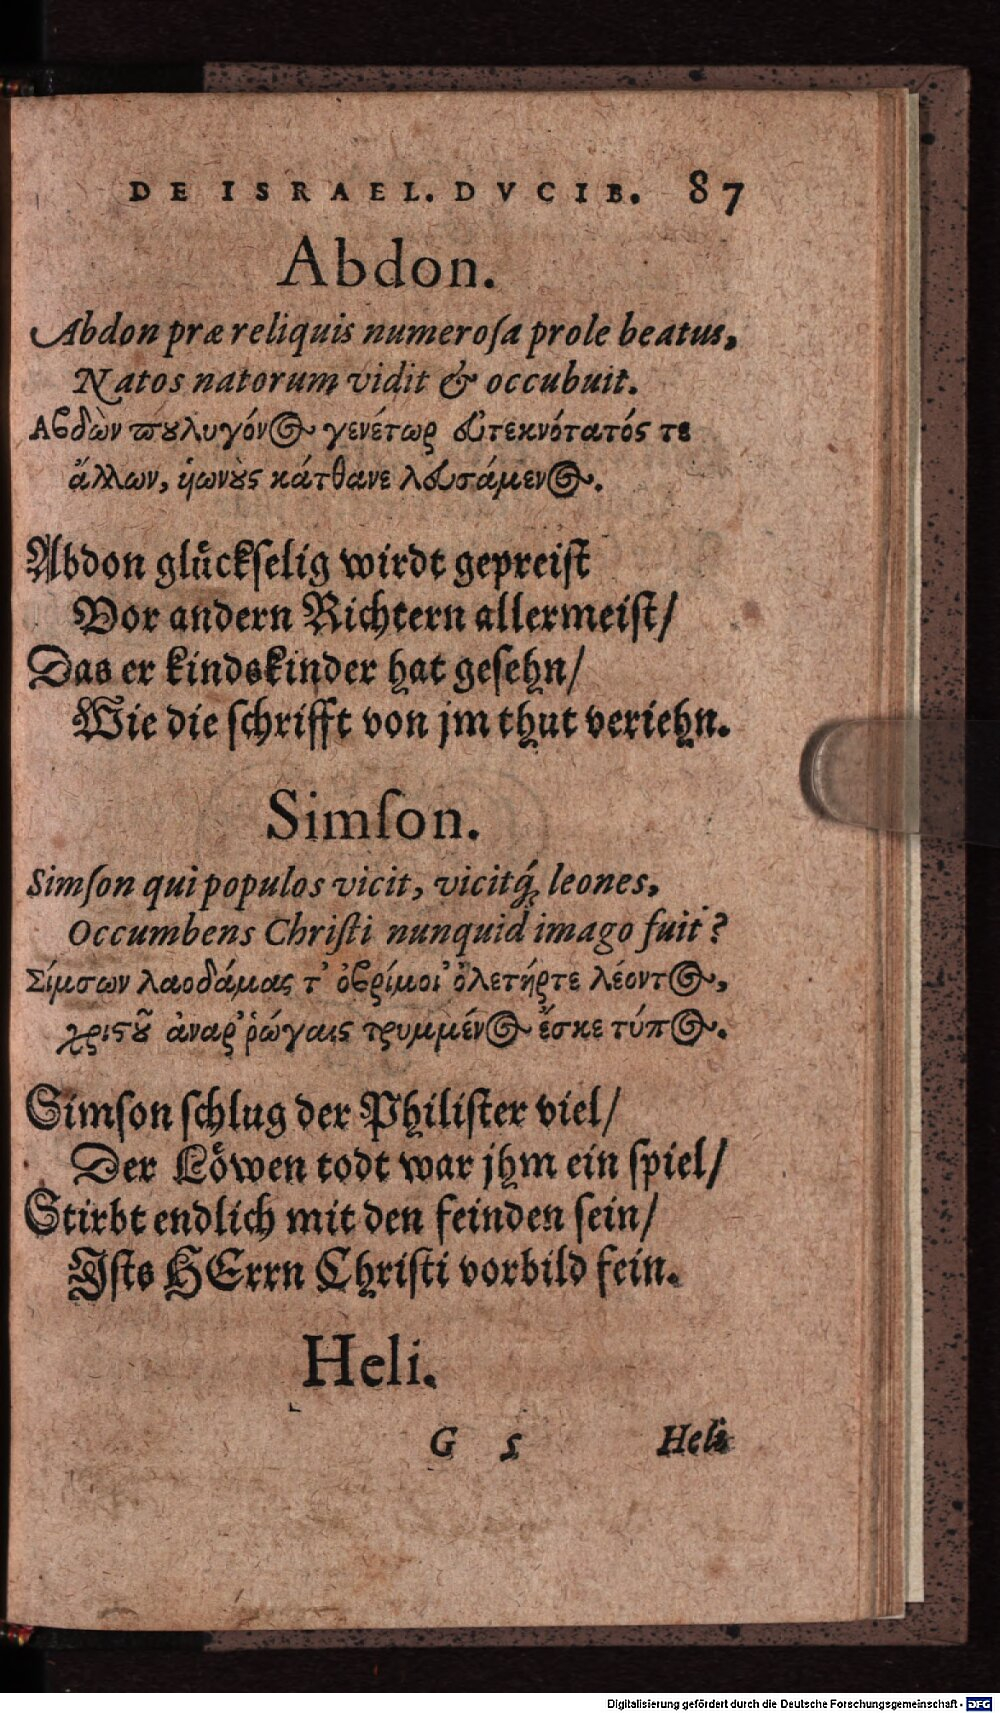 DE ISRAEL. DVCIB. 87
Abdon.
Abdon præ reliquis numeroſa prole beatus,
Natos natorum vidit & occubuit.
Αβδὼν πȣλυγόνος γενέτωρ εὐτεκνότατός τε
ἄλλων, ὑωνȣ̀ς κάτθανε λευσάμενος.
Abdon glůckſelig wirdt gepreiſt
Vor andern Richtern allermeiſt/
Das er kindskinder hat geſehn/
Wie die ſchrifft von jm thut veriehn.
Simſon.
Simſon qui populos vicit, vicitq́; leones,
Occumbens Chriſti nunquid imago fuit?
Σίμσων λαοδάμας τ' ὀβρίμοι' ὀλετήρτε λέοντος,
χριϛȣ͂ ἀναρ' ῥώγαις τρυμμένος ἔσκε τύπος.
Simſon ſchlug der Philiſter viel/
Der Lôwen todt war jhm ein ſpiel/
Stirbt endlich mit den feinden ſein/
Iſts HErrn Chriſti vorbild fein.
Heli.
G 5 Heli
Digitalisierung gefördert durch die Deutsche Forschungsgemeinschaft - DFG